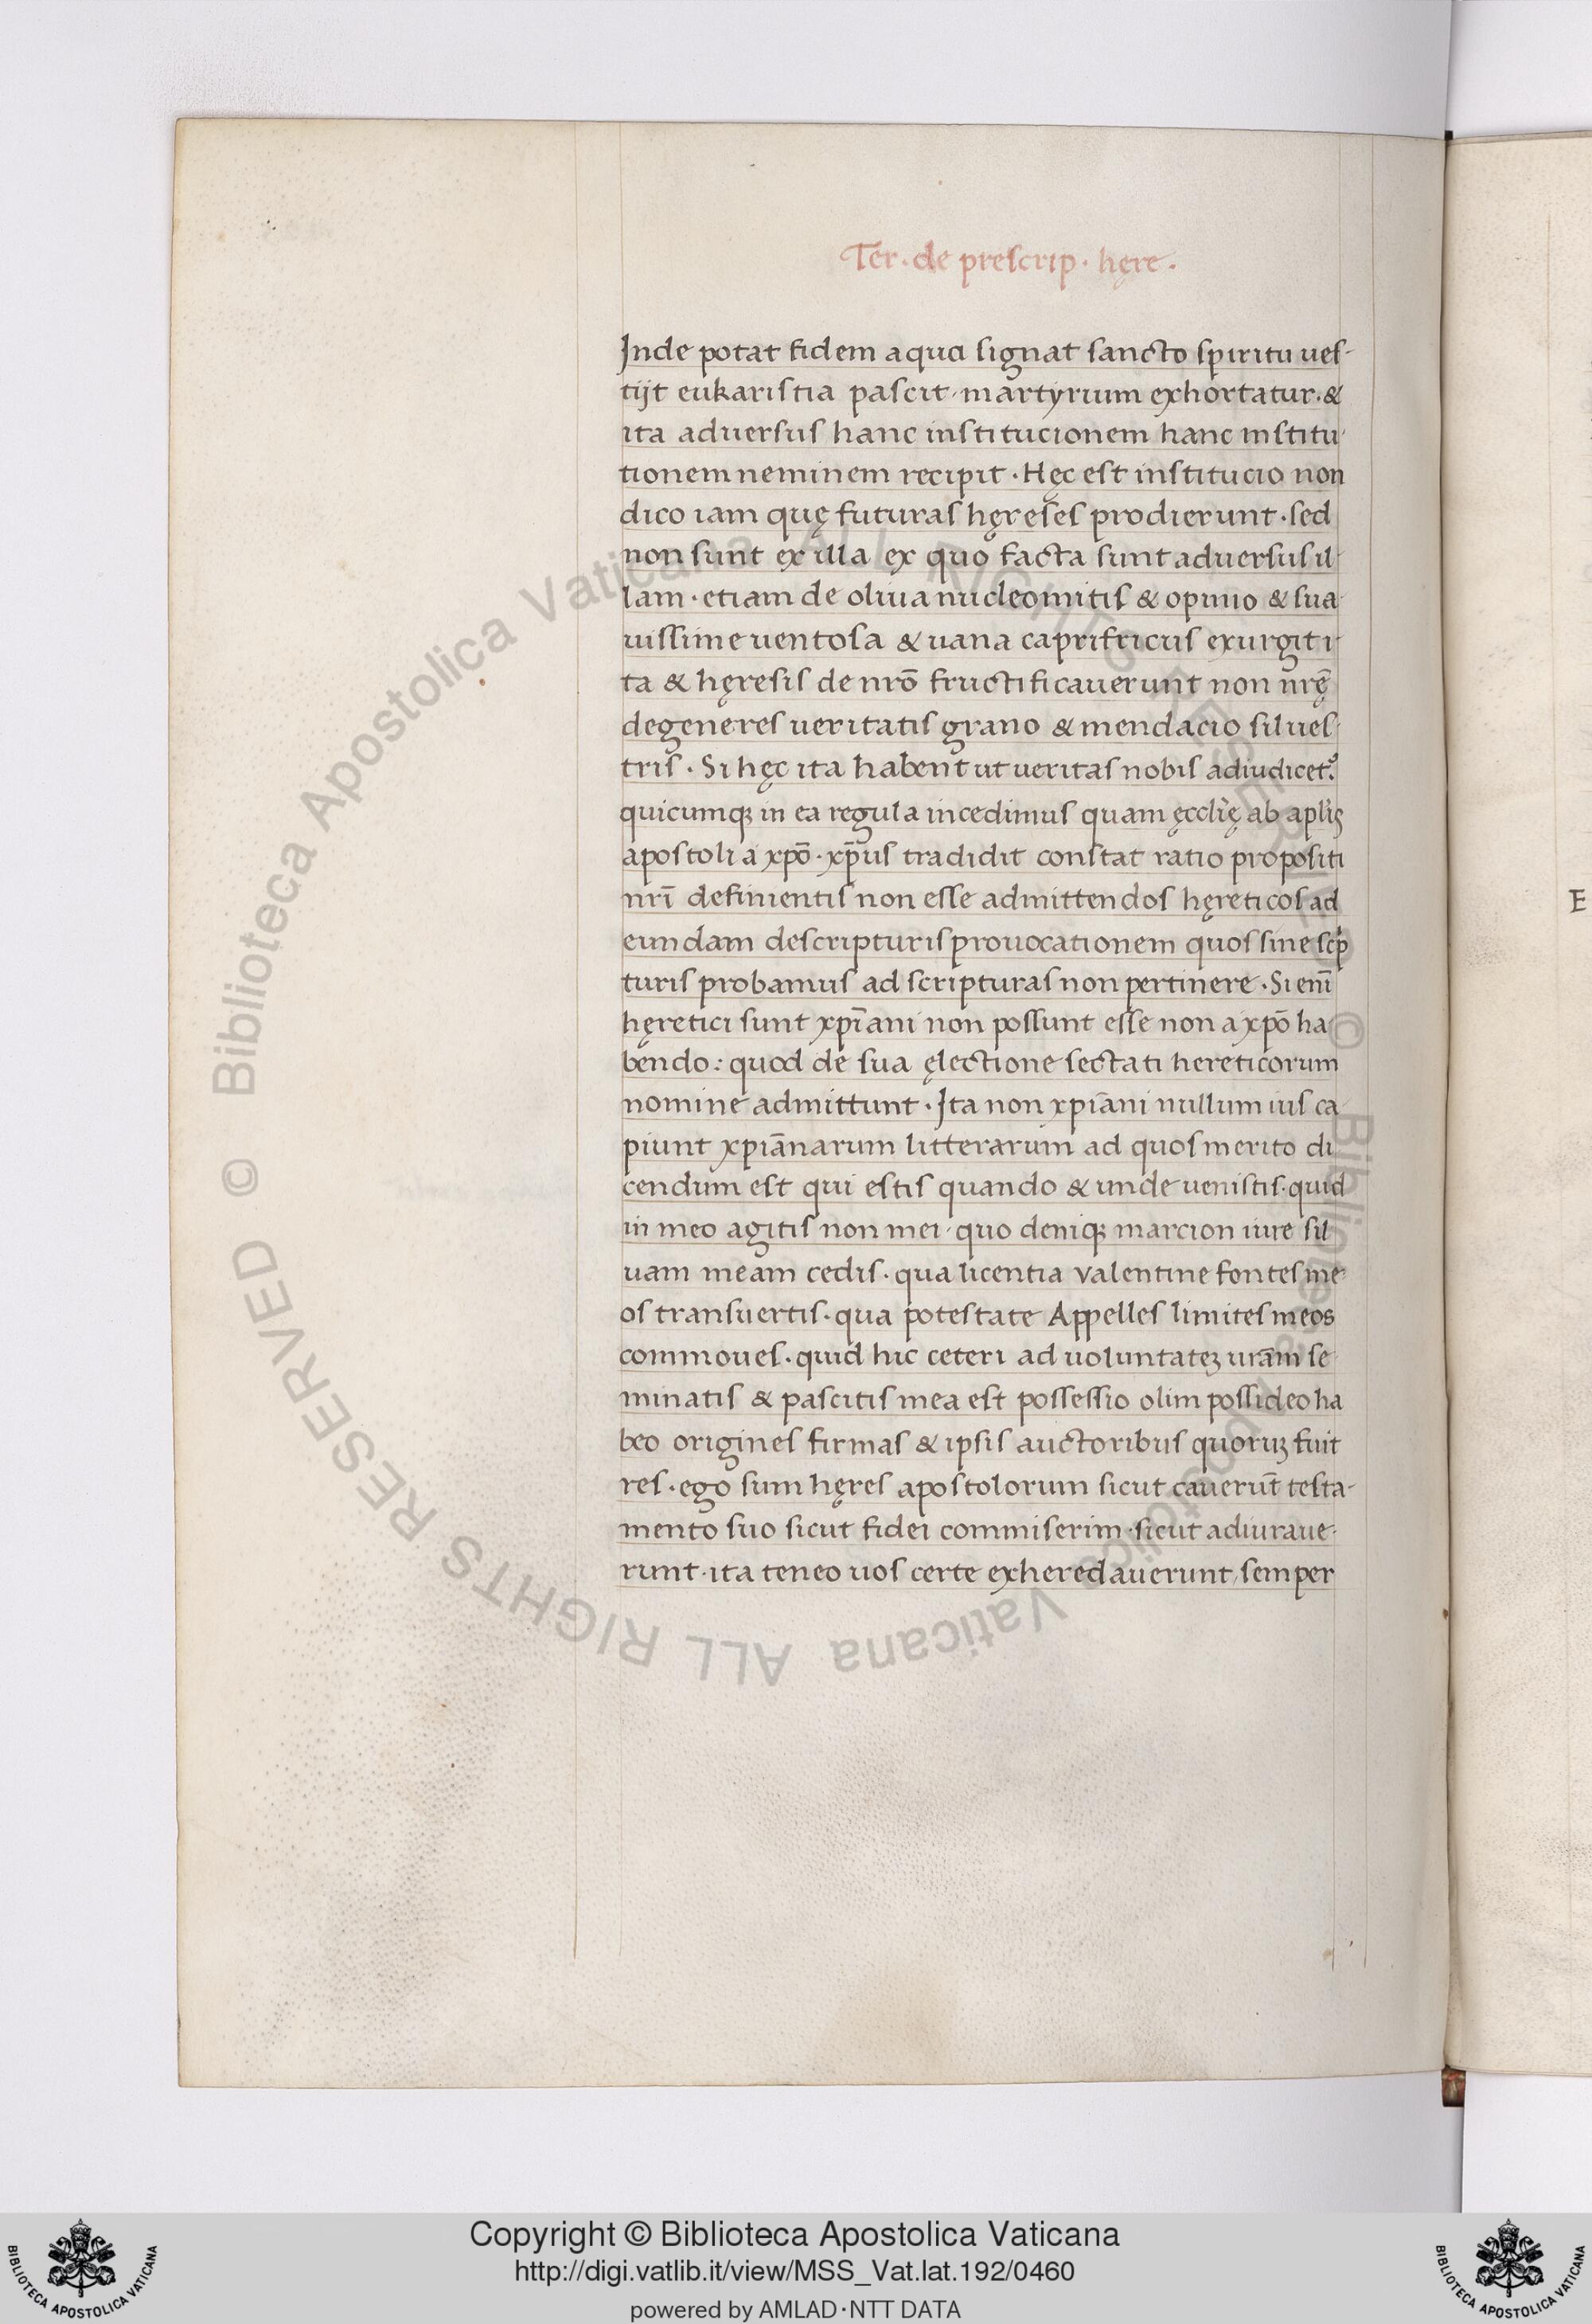 Ter · de prescrip · hęre ·
Inde potat fidem aqua signat sancto spiritu ues-
tijt eukaristia pascit · martyrium exhortatur · &
ita aduersus hanc institucionem hanc institu-
tionem neminem recipit · Hęc est institucio non
dico iam quę futuras hęreses prodierunt · sed
non sunt ex illa ex quo facta sunt aduersus il-
lam · etiam de oliua nucleo mitis & opimo & sua-
uissime uentosa & uana caprifricus exurgit i-
ta & hęresis de nrō fructificauerunt non nrę̄
degeneres ueritatis grano & mendacio silues-
tris · Si hęc ita habent ut ueritas nobis adiudicet᷑
quicumqꝫ in ea regula incedimus quam ęcclię̄ ab aplīs
apostoli a xpō · xp̄us tradidit constat ratio propositi
nrī definientis non esse admittendos hęreticos ad
eundam descripturis prouocationem quos sine scp̄
turis probamus ad scripturas non pertinere · Si enī
hęretici sunt xpīani non possunt esse non a xpō ha
bendo : quod de sua ęlectione sectati hereticorum
nomine admittunt · Ita non xpiāni nullum ius ca-
piunt xpiānarum litterarum ad quos merito di
cendum est qui estis quando & unde uenistis · quid
in meo agitis non mei · quo deniqꝫ marcion iure sil
uam meam cedis · qua licentia valentine fontes me-
os transuertis · qua potestate Appelles limites meos
commoues · quid hic ceteri ad uoluntateꝫ urām se-
minatis & pascitis mea est possessio olim possideo ha
beo origines firmas & ipsis auctoribus quoruꝫ fuit
res · ego sum hęres apostolorum sicut cauerūt testa-
mento suo sicut fidei commiserim · sicut adiuraue-
runt · ita teneo uos certe exheredauerunt / semper
E
© Biblioteca Apostolica Vaticana ALL RIGHTS RESERVED
© Biblioteca Apostolica Vaticana ALL RIGHTS RESERVED
Copyright © Biblioteca Apostolica Vaticana
http://digi.vatlib.it/view/MSS_Vat.lat.192/0460
powered by AMLAD·NTT DATA
BIBLIOTECA APOSTOLICA VATICANA
BIBLIOTECA APOSTOLICA VATICANA